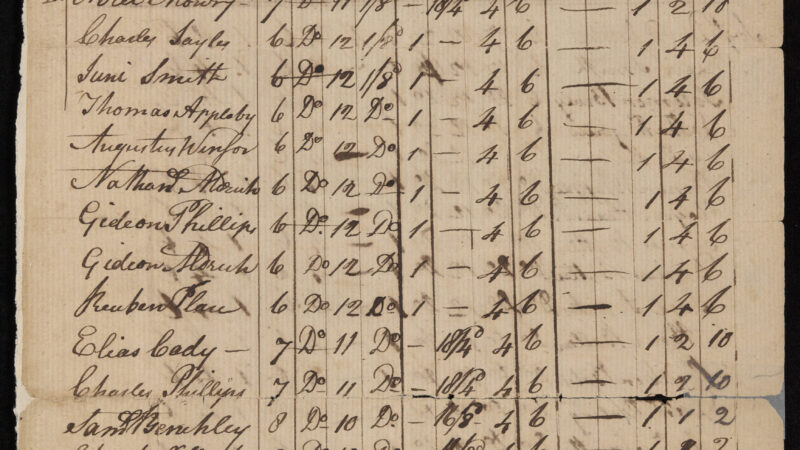 7 Do 11 1/8 – 18/4 4 6 — 1 2 10
Charles Sayles 6 Do 12 1/8d 1 – 4 6 — 1 4 6
Juni Smith 6 Do 12 1/8d 1 – 4 6 — 1 4 6
Thomas Appleby 6 Do 12 Do 1 – 4 6 — 1 4 6
Augustus Winsor 6 Do 12 Do 1 – 4 6 — 1 4 6
Nathanl Aldrich 6 Do 12 Do 1 – 4 6 — 1 4 6
Gideon Phillips 6 Do 12 Do 1 – 4 6 — 1 4 6
Gideon Aldrich 6 Do 12 Do 1 – 4 6 — 1 4 6
Reuben Place 6 Do 12 Do 1 – 4 6 — 1 4 6
Elias Cady – 7 Do 11 Do – 18/4d 4 6 — 1 2 10
Charles Phillips 7 Do 11 Do – 18/4d 4 6 — 1 2 10
Saml Benchley 8 Do 10 Do – 16/8d 4 6 — 1 1 2